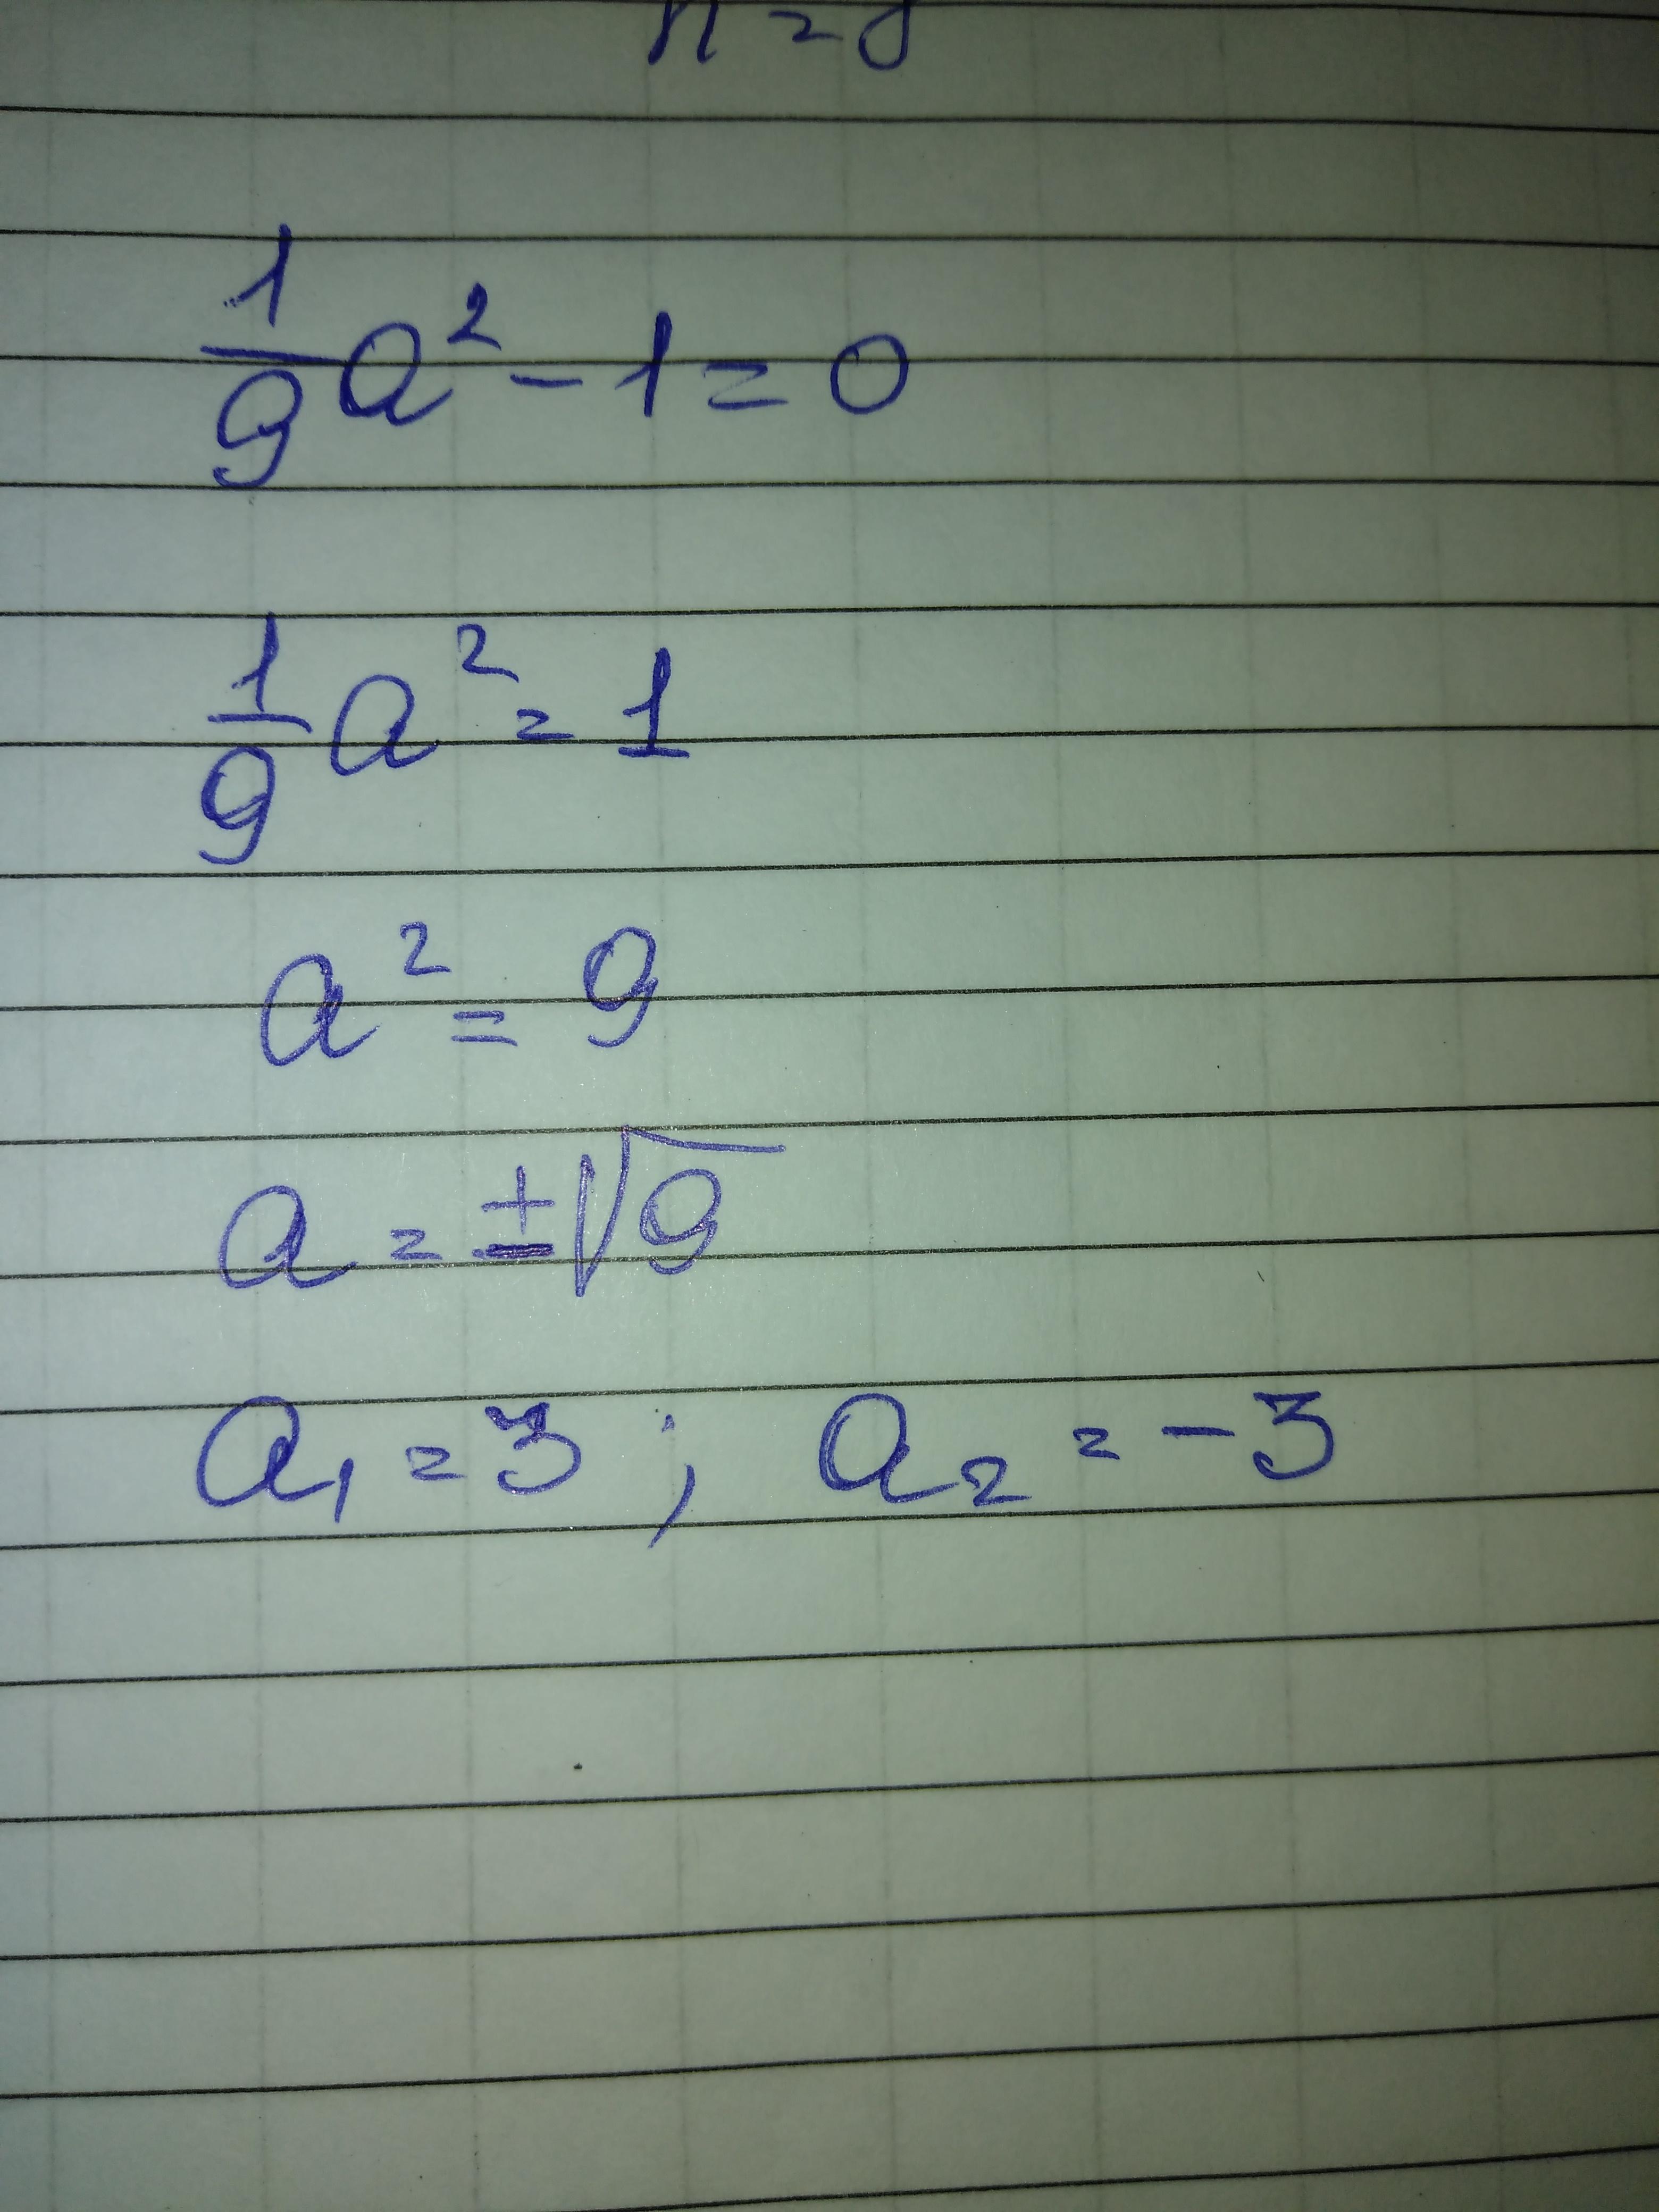 1/9 a² - 1 = 0
1/9 a² = 1
a² = 9
a = ±√9
a₁ = 3 ; a₂ = -3